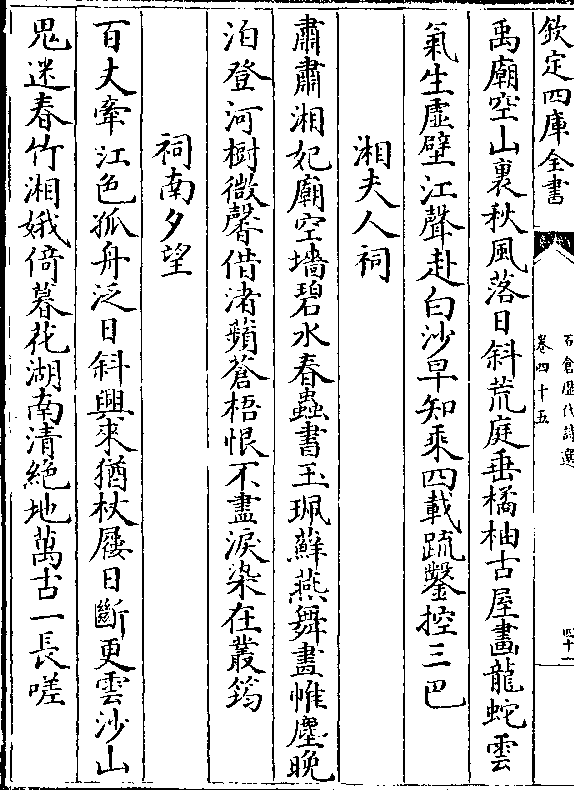 欽定四庫全書
石倉歷代詩選
卷四十五
四十一
禹廟空山裏秋風落日斜荒庭垂橘柚古屋畫龍蛇雲
氣生虛壁江聲赴白沙早知乘四載疏鑿控三巴
湘夫人祠
肅肅湘妃廟空墻碧水春蟲書玉珮蘚燕舞畫帷塵晚
泊登河樹微馨借渚蘋蒼梧恨不盡淚染在叢筠
祠南夕望
百丈牽江色孤舟泛日斜興來猶杖屨目斷更雲沙山
鬼迷春竹湘娥倚暮花湖南清絶地萬古一長嗟